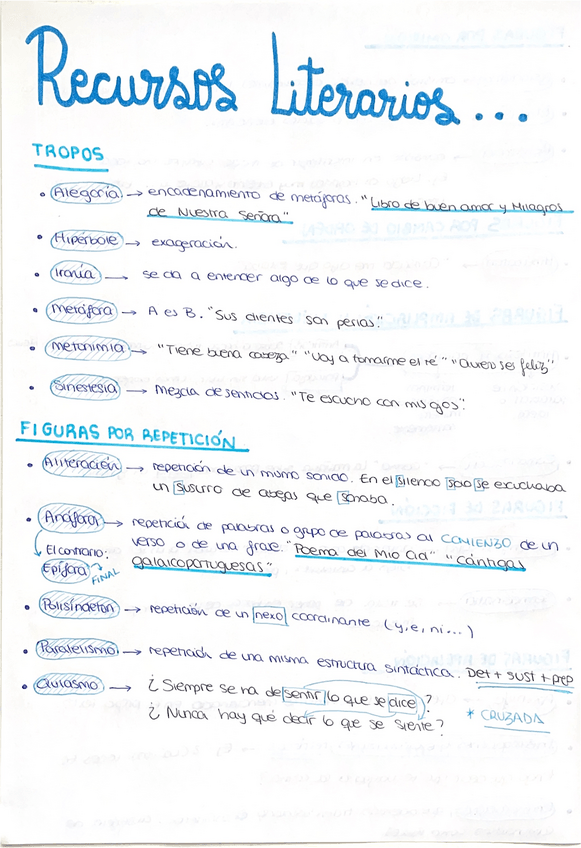 Recursos Literarios...
TROPOS
• Alegoría → encadenamiento de metáforas. "Libro de buen amor y Milagros
de Nuestra Señora"
• Hipérbole → exageración.
• Ironía → se da a entender algo de lo que se dice.
• Metáfora → A es B. "Sus dientes son perlas."
• Metonimia → "Tiene buena cabeza" "Voy a tomarme el té" "Quiero ser feliz"
• Sinestesia → Mezcla de sentidos. "Te escucho con mis ojos".
FIGURAS POR REPETICIÓN
• Aliteración → repetición de un mismo sonido. En el silencio solo se escuchaba
un susurro de abejas que sonaba.
• Anáfora → repetición de palabras o grupo de palabras al COMIENZO de un
verso o de una frase. "Poema del Mio Cid" "Cántigas
galaicoportuguesas"
El contrario:
Epífora → FINAL
• Polisíndeton → repetición de un nexo coordinante (y, e, ni...)
• Paralelismo → repetición de una misma estructura sintáctica. Det + sust + prep
• Quiasmo → ¿Siempre se ha de sentir lo que se dice?
¿Nunca hay qué decir lo que se siente?
* CRUZADA